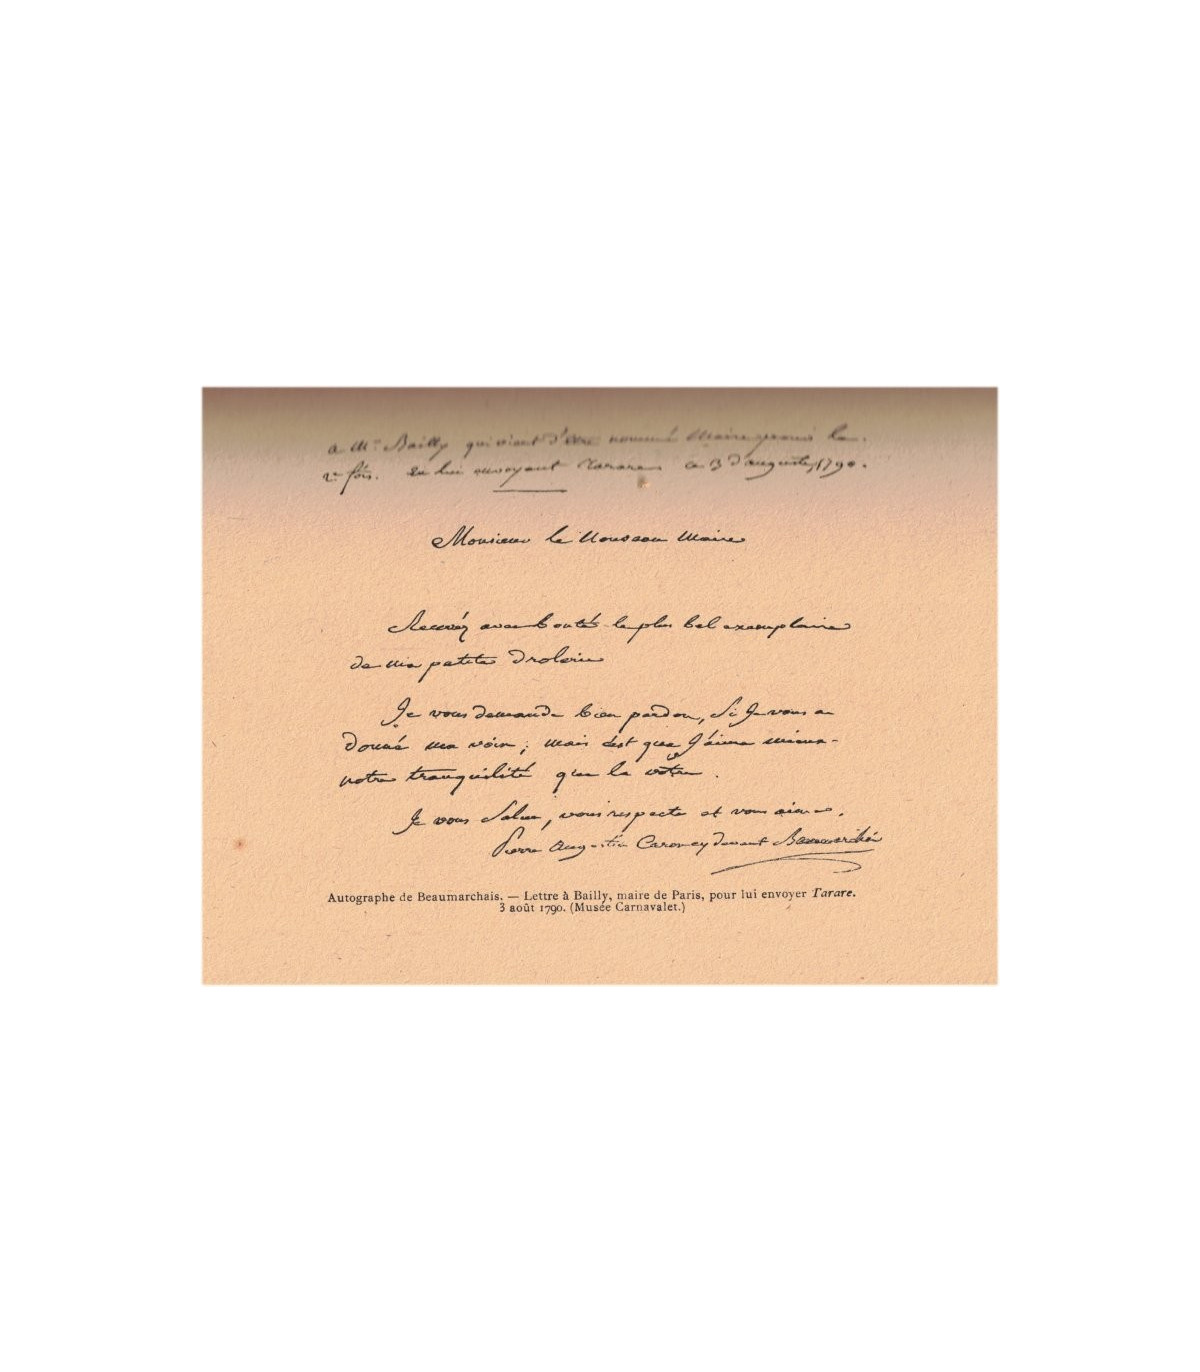 a Mr. Bailly qui vient d'etre nommé Maire pour la
2e fois. en lui envoyant Tarare ce 3 d'auguste 1790.
Monsieur le Nouveau Maire
Recevéz avec bonté le plus bel exemplaire
de ma petite drolerie
Je vous demande bien pardon, Si Je vous ai
donné ma voix; mais c'est que J'aime mieux
notre tranquilité que la vôtre.
Je vous Salue, vous respecte et vous aime.
Pierre Augustin Caron cy devant Beaumarchais
Autographe de Beaumarchais. — Lettre à Bailly, maire de Paris, pour lui envoyer Tarare.
3 août 1790. (Musée Carnavalet.)